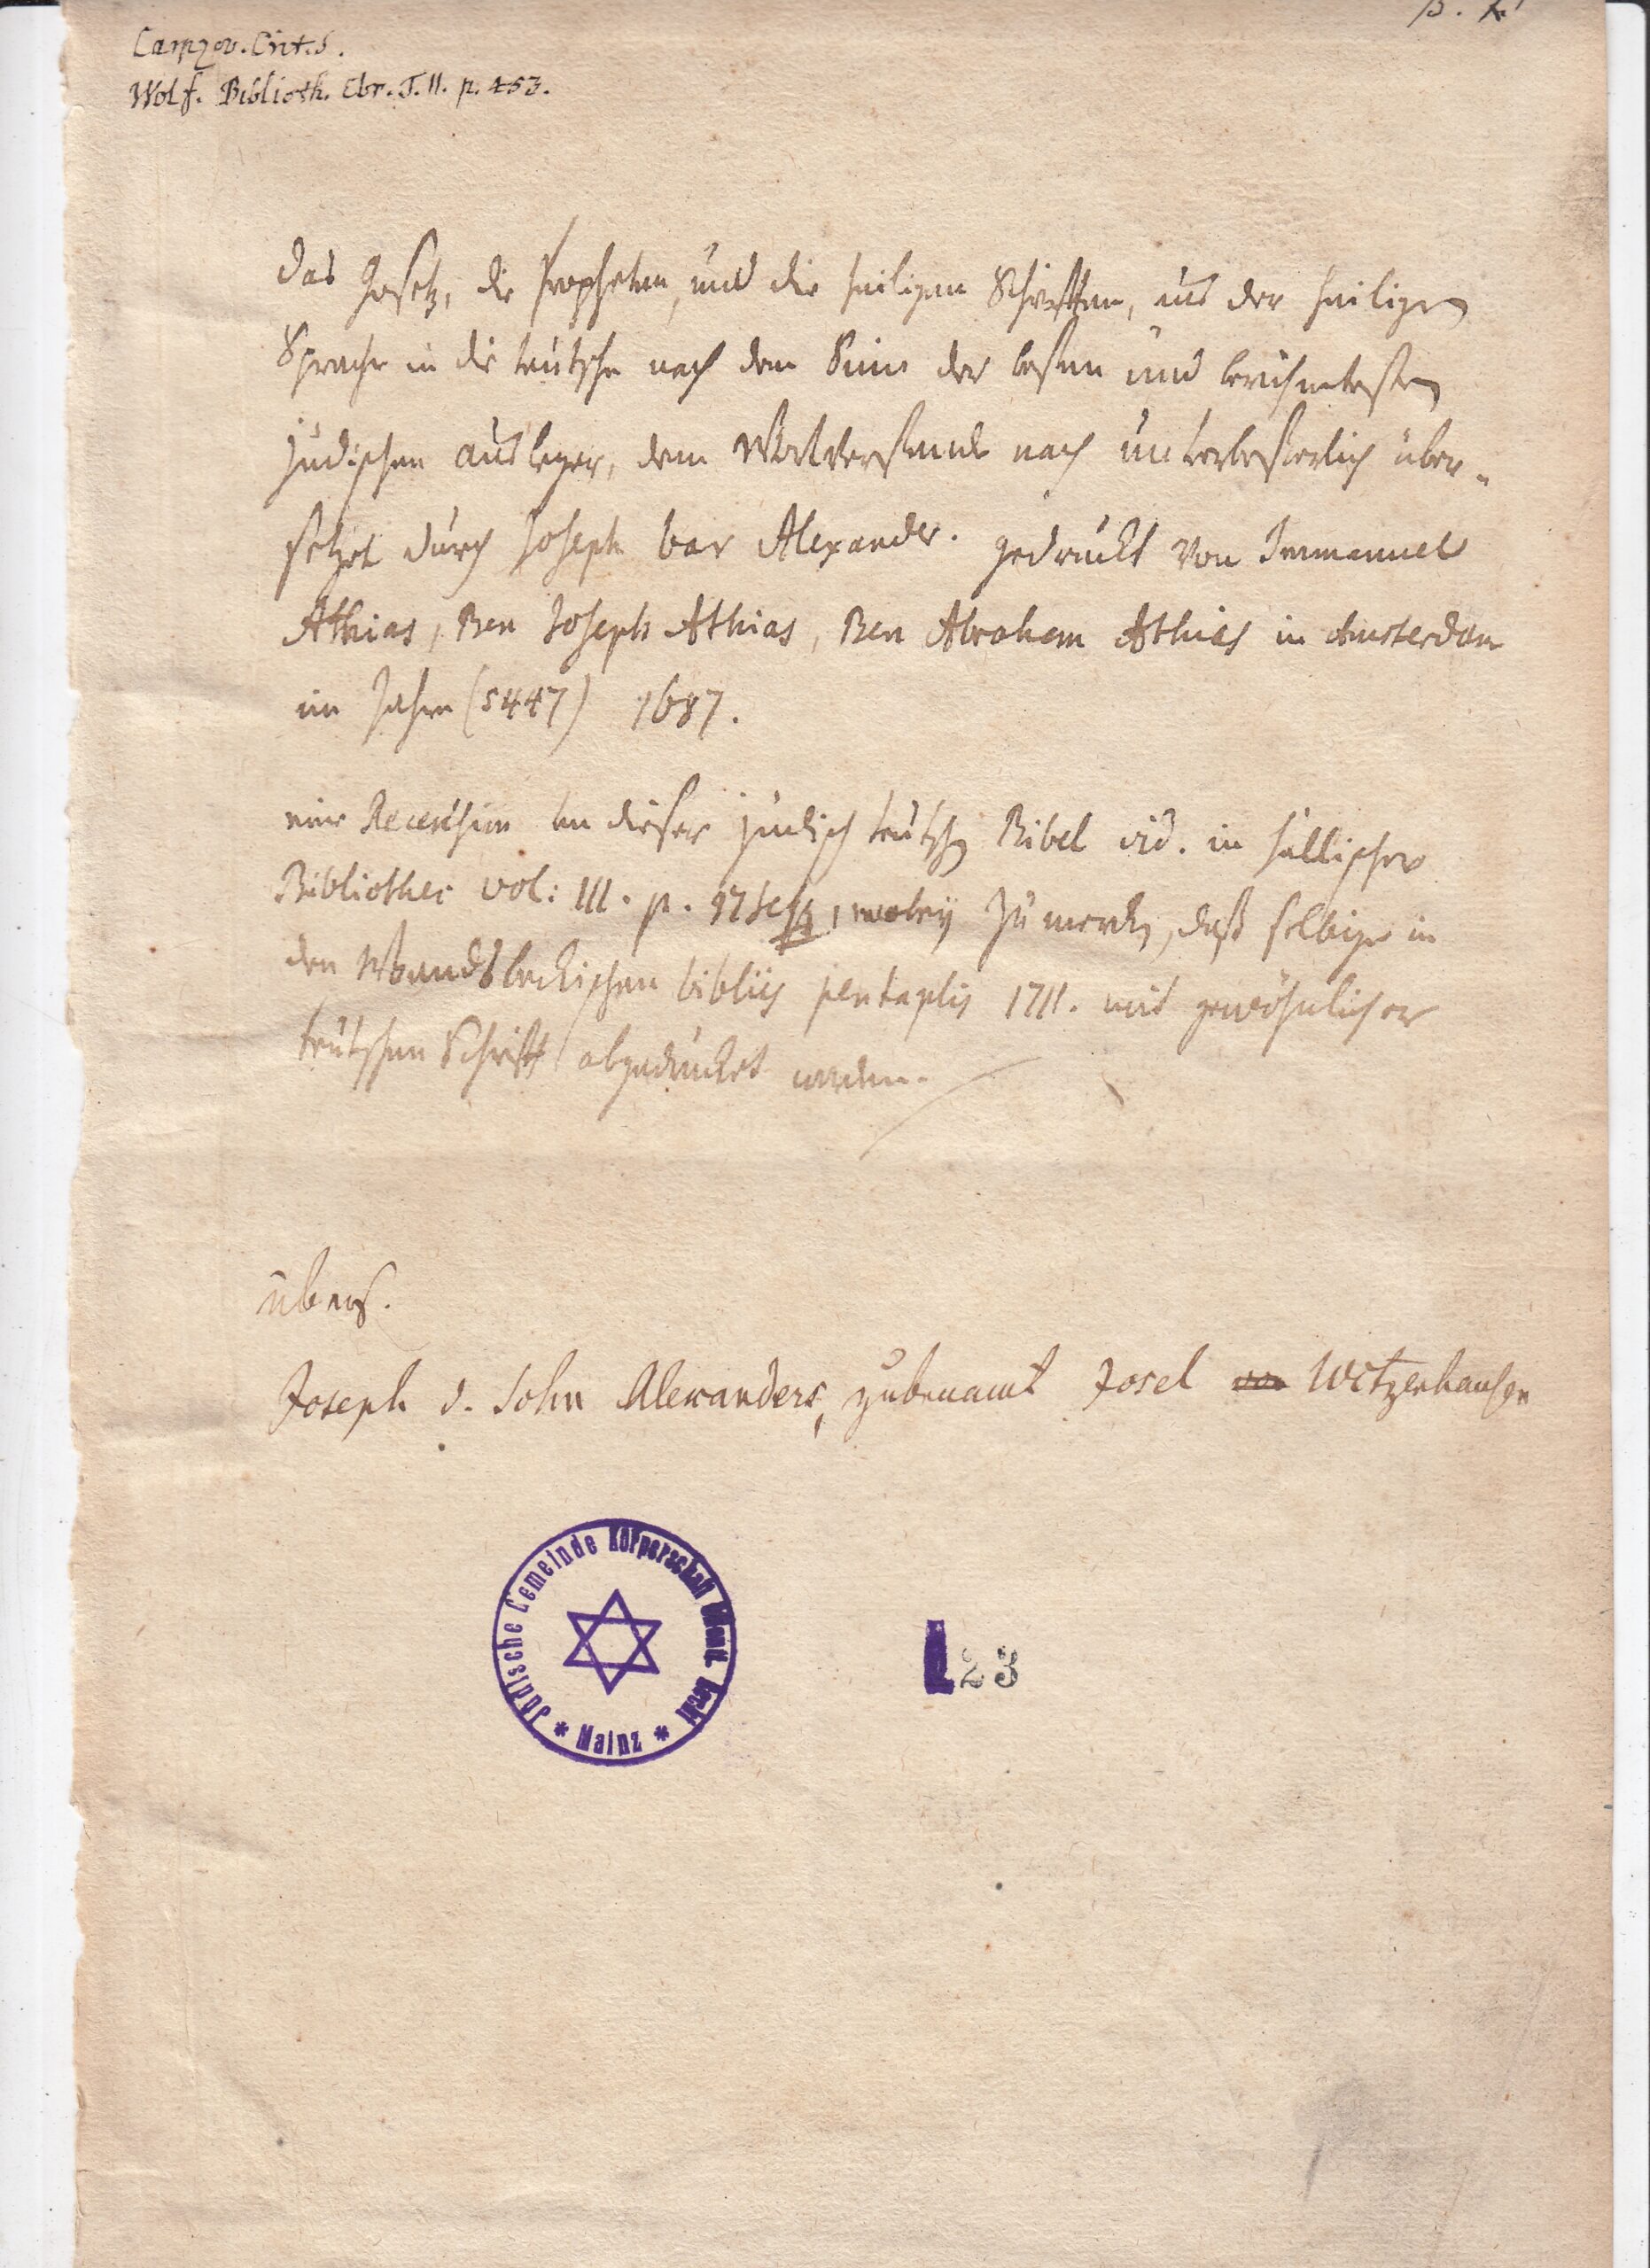 Carpzov. Crit. S.
Wolf. Biblioth. Ebr. T. II. p. 453.
das Gesetz, die Propheten, und die heiligen Schrifften, aus der heiligen
Sprache in die teutsche nach dem Sinn der besten und berühmtesten
jüdischen ausleger, dem Wortverstande nach unverbesserlich über-
setzet durch Joseph bar Alexander. gedruckt von Immanuel
Athias, Ben Joseph Athias, Ben Abraham Athias in Amsterdam
im Jahre (5447) 1687.
eine Recension von dieser jüdisch teutschen Bibel vid. in hallischer
Bibliothec vol: III. p. 97 seqq, wobey zu mercken, daß selbige in
den Wandsbeckischen bibliis pentaplis 1711. mit gewöhnlicher
teutschen Schrifft abgedrucket worden.
übers.
Joseph d. Sohn Alexanders, zubenamt Josel von Witzenhausen
Jüdische Gemeinde Körperschaft Mainz
23